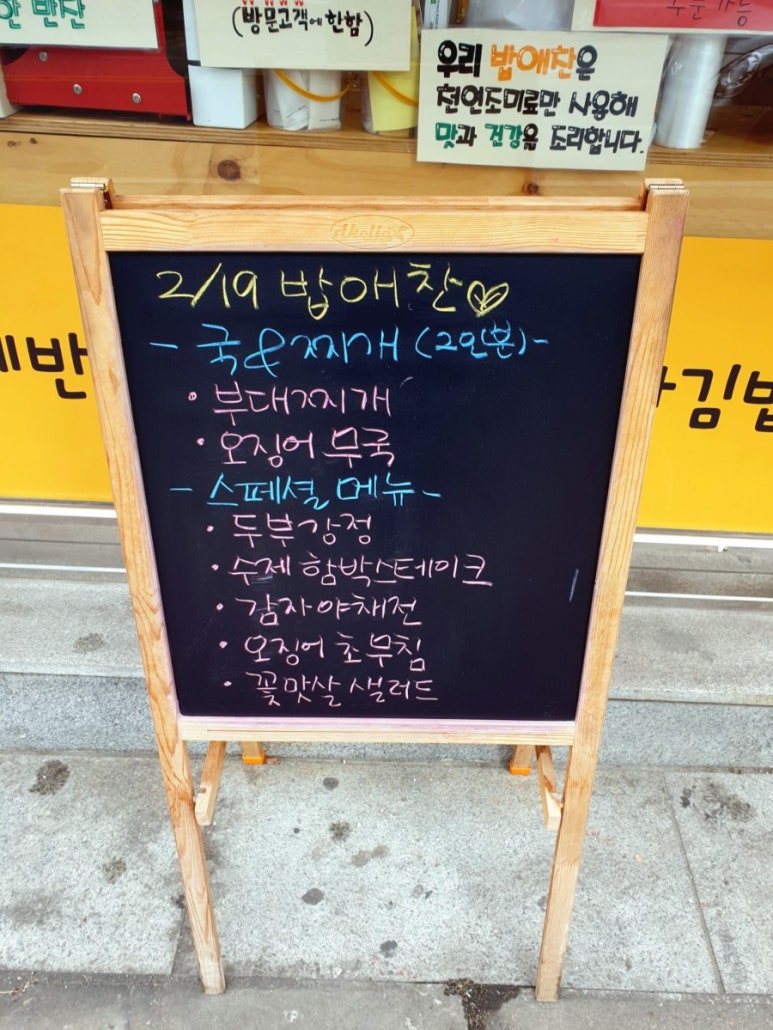 한 반찬
(방문고객에 한함)
주문가능
우리 밥애찬은
천연조미료만 사용해
맛과 건강을 조리합니다.
2/19 밥애찬
- 국&찌개 (2인분) -
• 부대찌개
• 오징어 무국
- 스페셜 메뉴 -
• 두부강정
• 수제 함박스테이크
• 감자야채전
• 오징어 초무침
• 꽃맛살 샐러드
제반
김밥